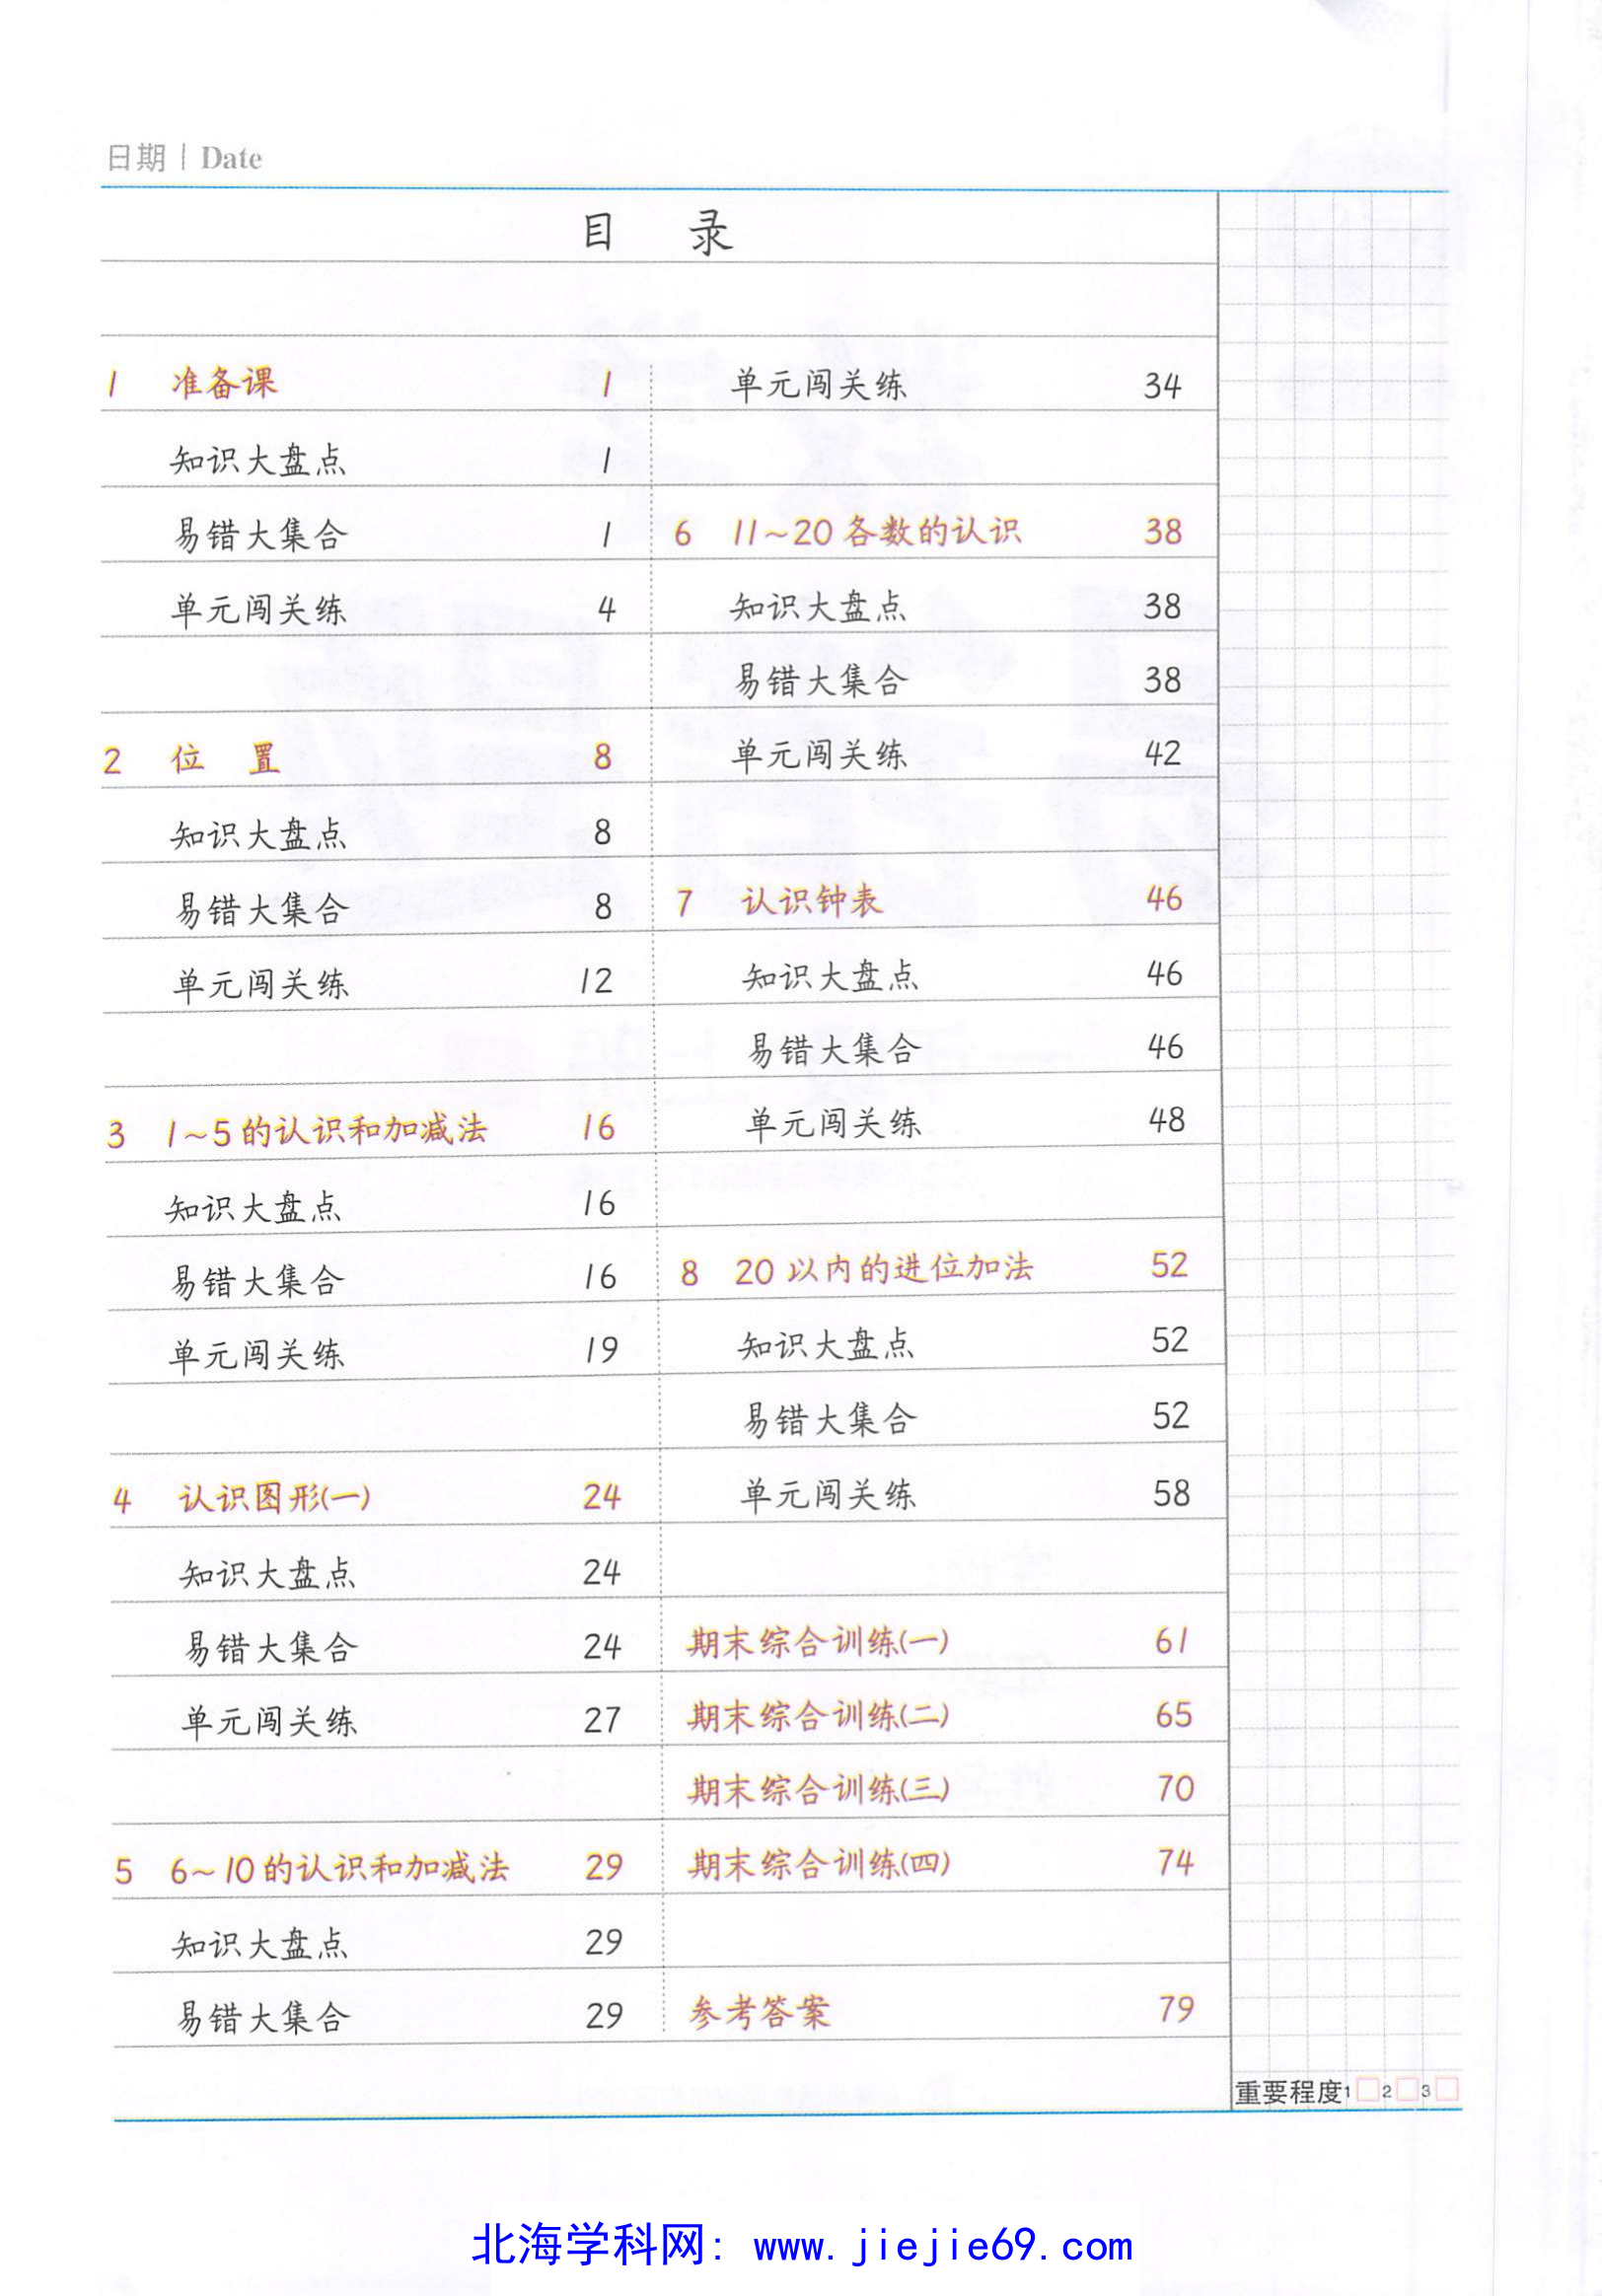 日期 | Date
目 录
1 准备课 1
知识大盘点 1
易错大集合 1
单元闯关练 4
2 位 置 8
知识大盘点 8
易错大集合 8
单元闯关练 12
3 1~5的认识和加减法 16
知识大盘点 16
易错大集合 16
单元闯关练 19
4 认识图形(一) 24
知识大盘点 24
易错大集合 24
单元闯关练 27
5 6~10的认识和加减法 29
知识大盘点 29
易错大集合 29
单元闯关练 34
6 11~20各数的认识 38
知识大盘点 38
易错大集合 38
单元闯关练 42
7 认识钟表 46
知识大盘点 46
易错大集合 46
单元闯关练 48
8 20以内的进位加法 52
知识大盘点 52
易错大集合 52
单元闯关练 58
期末综合训练(一) 61
期末综合训练(二) 65
期末综合训练(三) 70
期末综合训练(四) 74
参考答案 79
重要程度1□2□3□
北海学科网: www.jiejie69.com